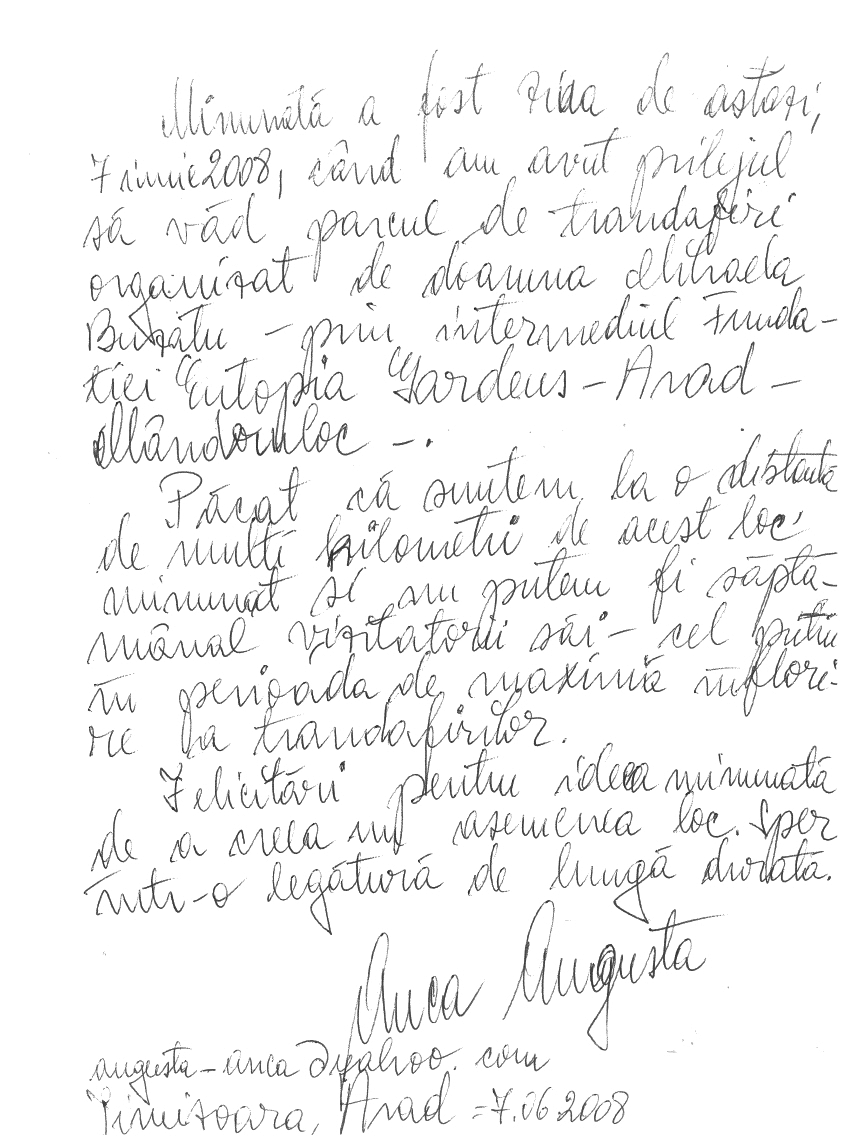 Minunată a fost ziua de astazi,
7 iunie 2008, când am avut prilejul
să văd parcul de trandafiri
organizat de doamna Mihaela
Buzatu - prin intermediul Funda-
tiei Eutopia Gardens - Arad -
Mândruloc -.
Păcat că suntem la o distantă
de multi kilometri de acest loc
minunat si nu putem fi săptă-
mânal vizitatorii săi - cel putin
în perioada de maximă înflori-
re a trandafirilor.
Felicitări pentru ideea minunată
de a creea un asemenea loc. Sper
într-o legătură de lungă durată.
Anca Augusta
augusta-anca@yahoo.com
Timisoara, Arad = 7.06 2008